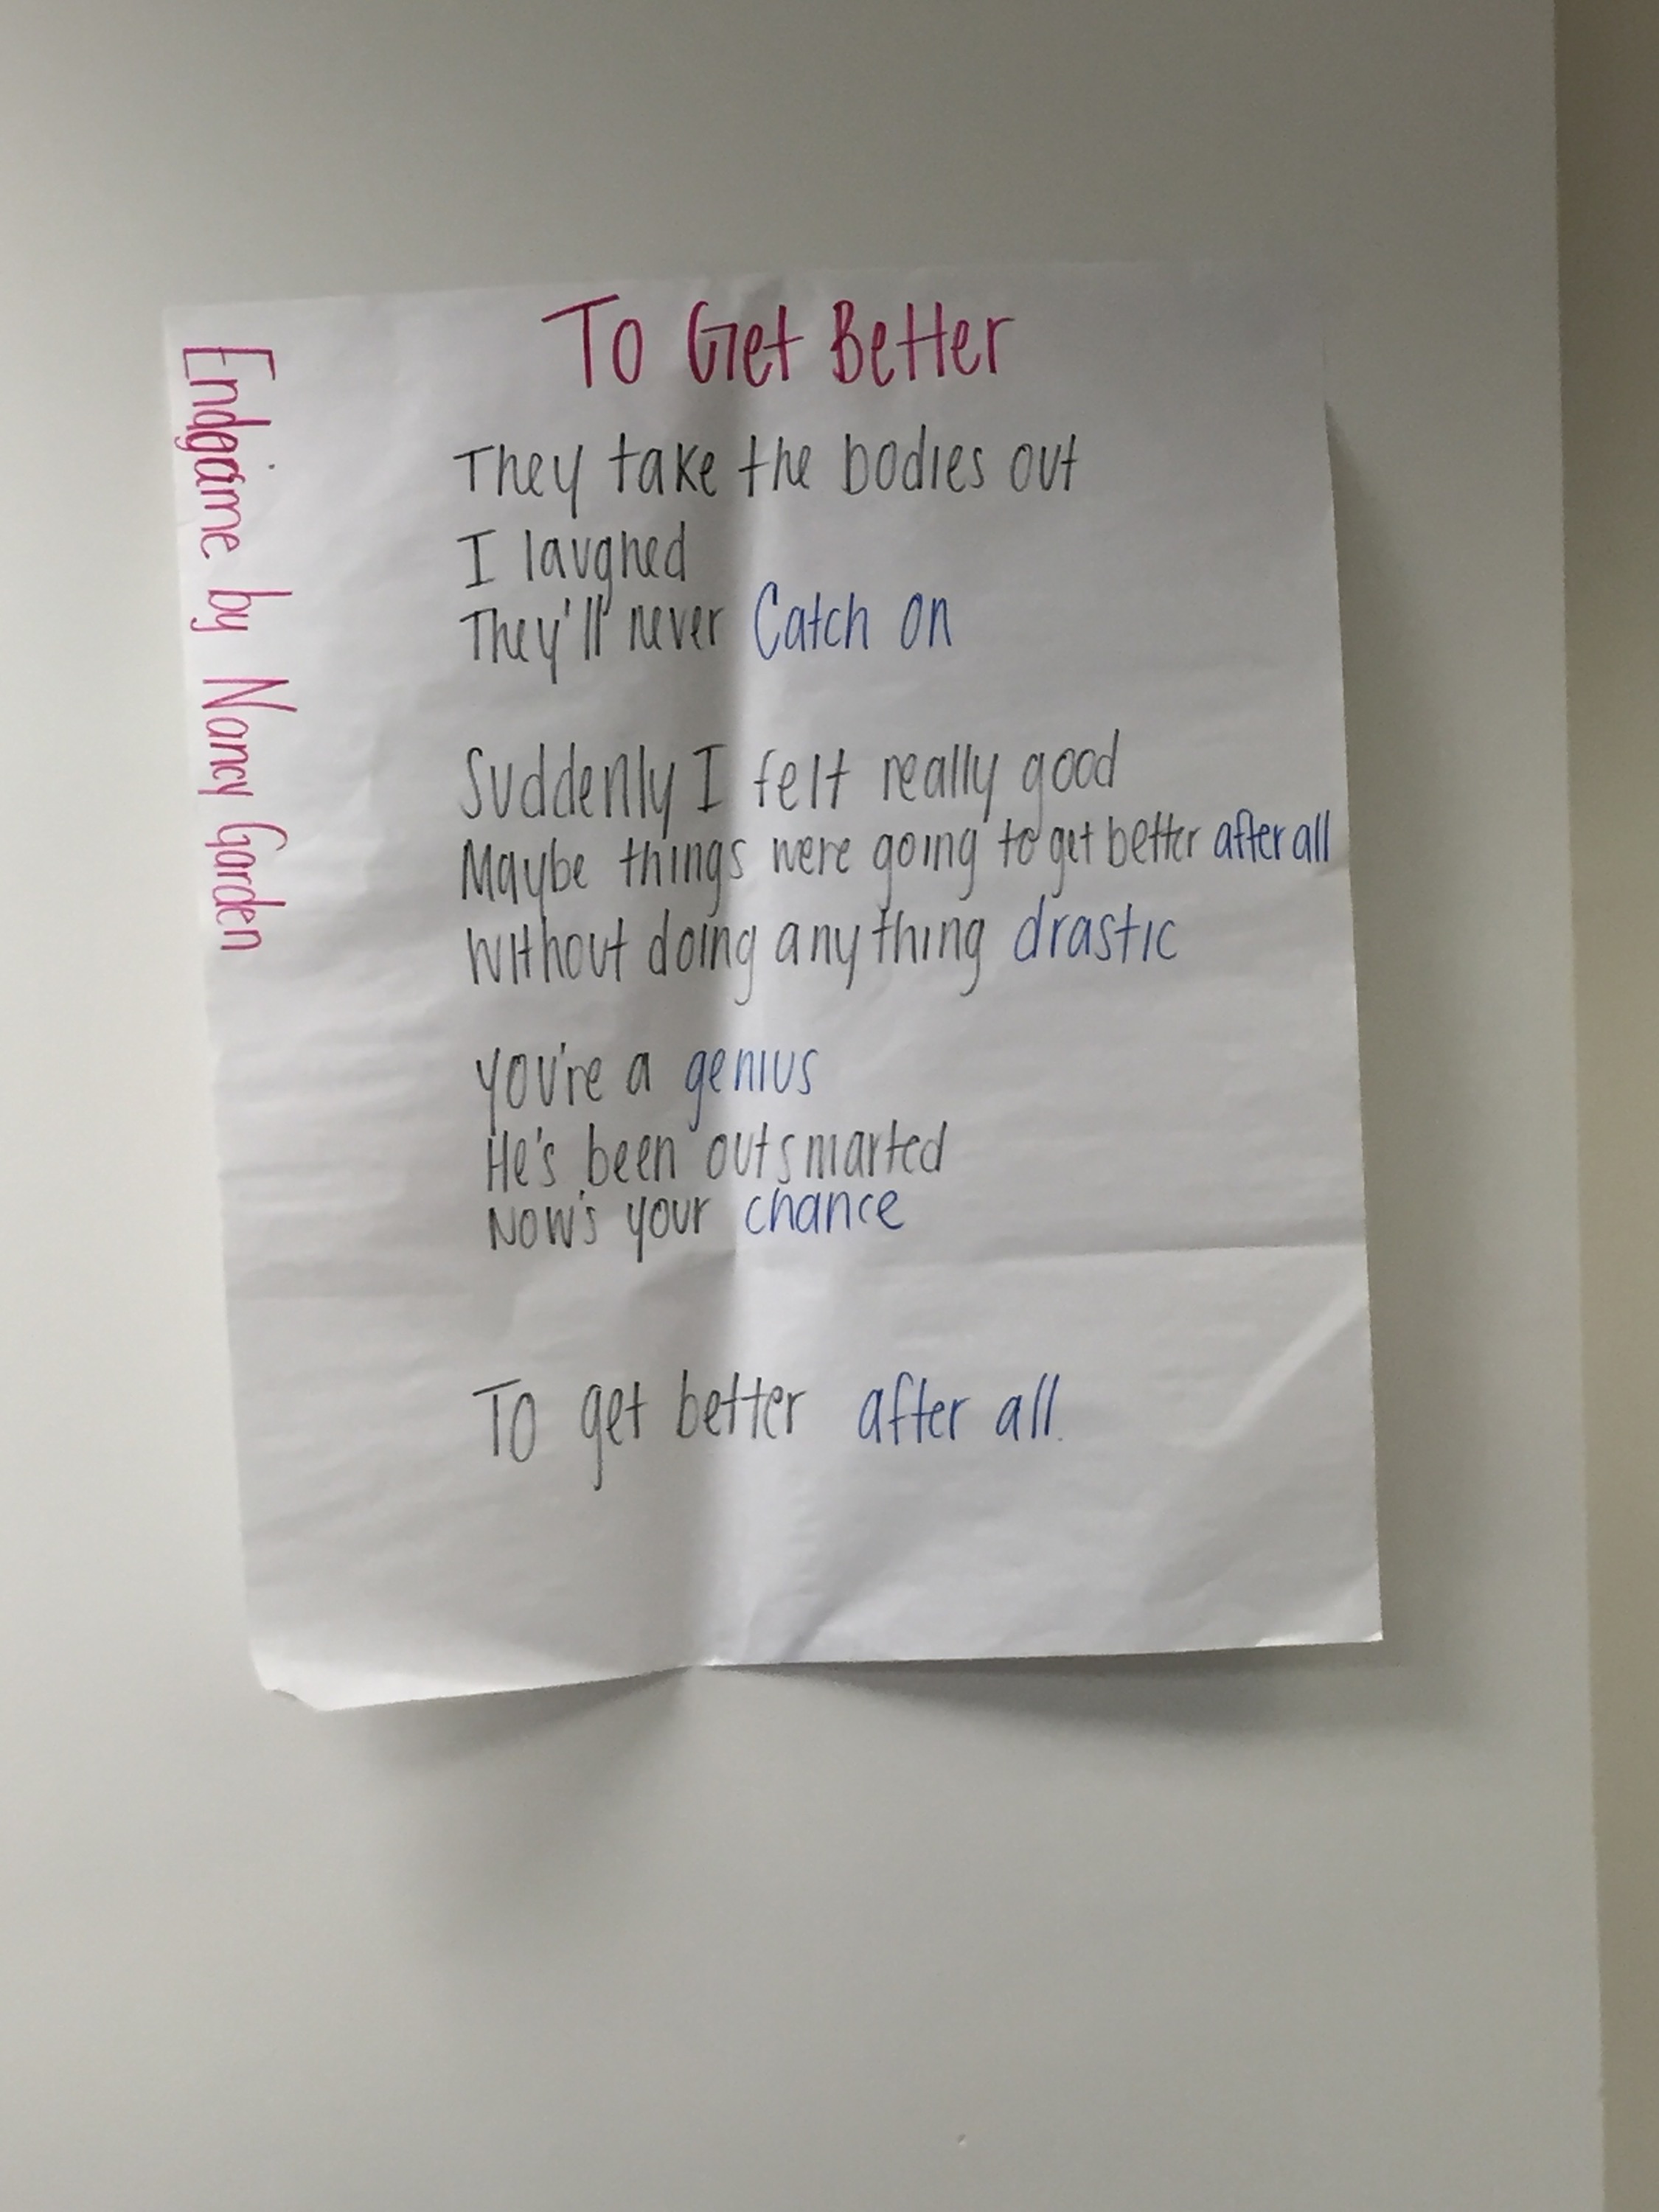 To Get Better
They take the bodies out
I laughed
They'll never Catch on
Suddenly I felt really good
Maybe things were going to get better after all
Without doing anything drastic
You're a genius
He's been outsmarted
Now's your chance
To get better after all.
Endgame by Nancy Garden